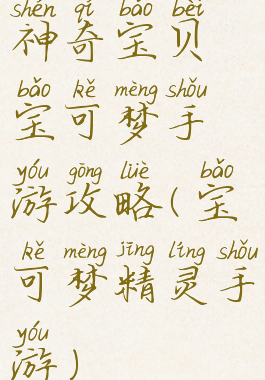 shén qí bǎo bèi
神奇宝贝
bǎo kě mèng shǒu
宝可梦手
yóu gōng lüè bǎo
游攻略(宝
kě mèng jīng líng shǒu
可梦精灵手
yóu
游)